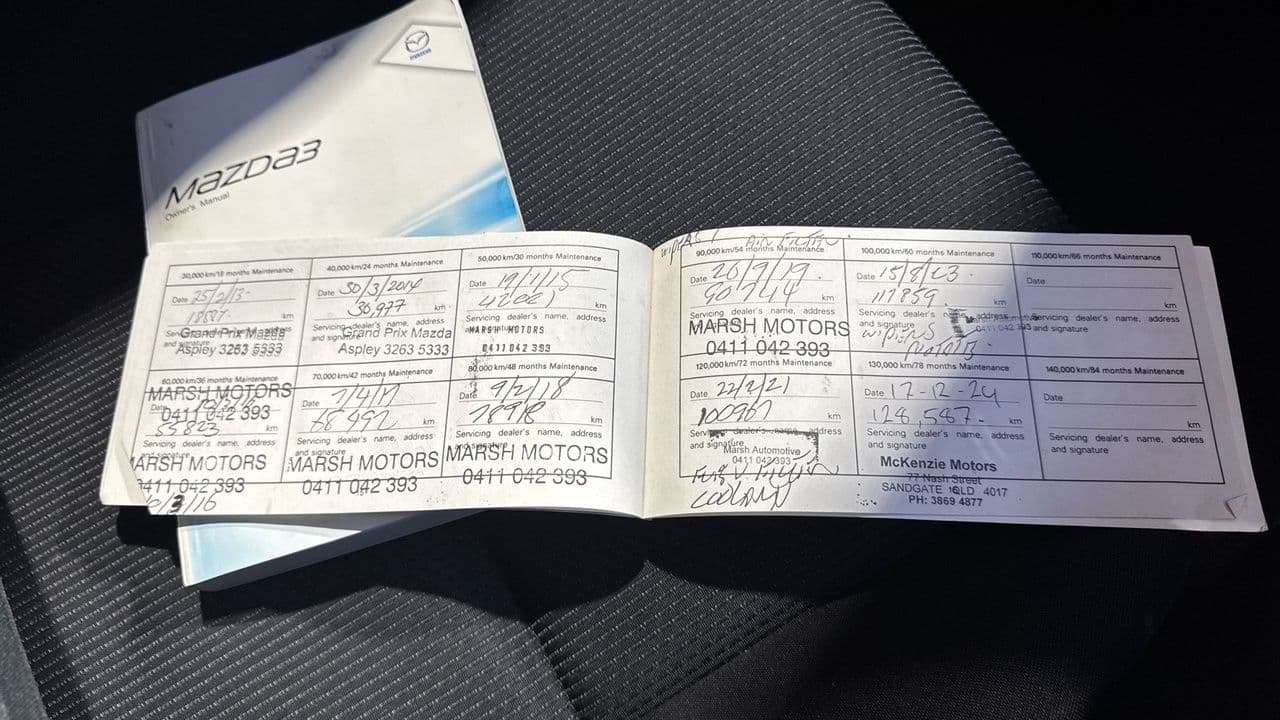 mazda
mazda3
Owner's Manual
30,000 km/18 months Maintenance
Date 25/2/13
km
Grand Prix Mazda
Aspley 3263 5333
40,000 km/24 months Maintenance
Date 30/3/2014
30,977 km
Servicing dealer's name, address
and signature
Grand Prix Mazda
Aspley 3263 5333
50,000 km/30 months Maintenance
Date 19/1/15
km
Servicing dealer's name, address
MARSH MOTORS
0411 042 393
60,000 km/36 months Maintenance
MARSH MOTORS
Date
0411 042 393
55823 km
Servicing dealer's name, address
and signature
MARSH MOTORS
0411 042 393
70,000 km/42 months Maintenance
Date
68492 km
Servicing dealer's name, address
and signature
MARSH MOTORS
0411 042 393
80,000 km/48 months Maintenance
Date 9/2/18
km
Servicing dealer's name, address
and signature
MARSH MOTORS
0411 042 393
AIR FILTER
90,000 km/54 months Maintenance
Date 20/9/19
90744 km
Servicing dealer's name, address
MARSH MOTORS
0411 042 393
100,000 km/60 months Maintenance
Date
117859 km
Servicing dealer's name, address
and signature
wipers
110,000 km/66 months Maintenance
Date
km
Servicing dealer's name, address
and signature
120,000 km/72 months Maintenance
Date 22/2/21
100967 km
Servicing dealer's name, address
and signature
Marsh Automotive
0411 042 393
COOLANT
130,000 km/78 months Maintenance
Date 17-12-24
128,587 km
Servicing dealer's name, address
and signature
McKenzie Motors
77 Nash Street
SANDGATE QLD 4017
PH: 3869 4877
140,000 km/84 months Maintenance
Date
km
Servicing dealer's name, address
and signature